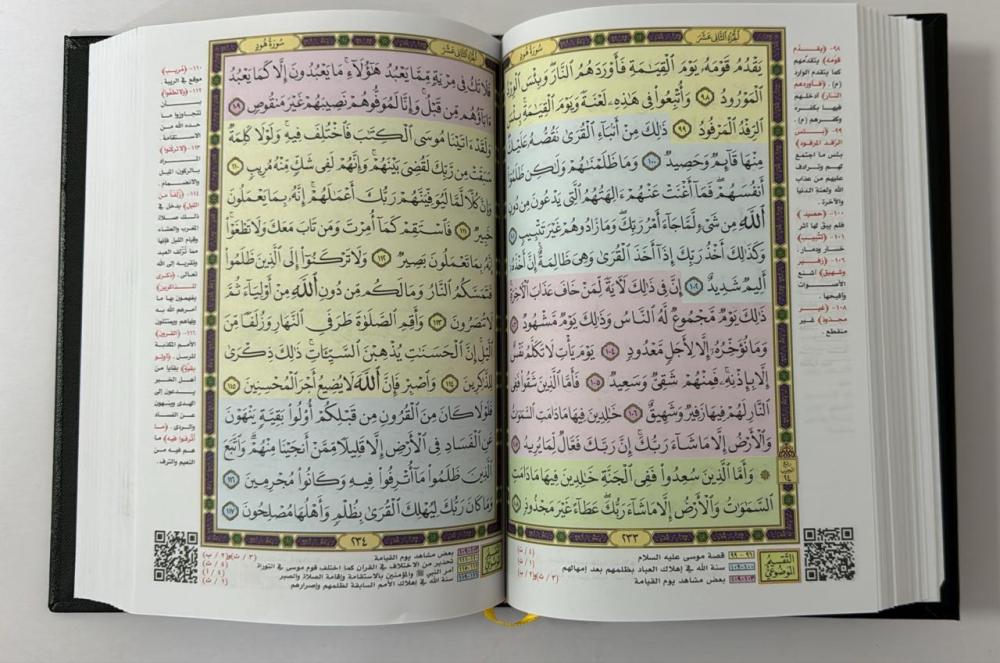 الجُزءُ الثَّانِي عَشَرَ
سُورَةُ هُودٍ
يَقْدُمُ قَوْمَهُۥ يَوْمَ ٱلْقِيَٰمَةِ فَأَوْرَدَهُمُ ٱلنَّارَۖ وَبِئْسَ ٱلْوِرْدُ
ٱلْمَوْرُودُ ٩٨ وَأُتْبِعُوا۟ فِى هَٰذِهِۦ لَعْنَةً وَيَوْمَ ٱلْقِيَٰمَةِۚ بِئْسَ
ٱلرِّفْدُ ٱلْمَرْفُودُ ٩٩ ذَٰلِكَ مِنْ أَنۢبَآءِ ٱلْقُرَىٰ نَقُصُّهُۥ عَلَيْكَۖ
مِنْهَا قَآئِمٌ وَحَصِيدٌ ١٠٠ وَمَا ظَلَمْنَٰهُمْ وَلَٰكِن ظَلَمُوٓا۟
أَنفُسَهُمْۖ فَمَآ أَغْنَتْ عَنْهُمْ ءَالِهَتُهُمُ ٱلَّتِى يَدْعُونَ مِن دُونِ
ٱللَّهِ مِن شَىْءٍ لَّمَّا جَآءَ أَمْرُ رَبِّكَۖ وَمَا زَادُوهُمْ غَيْرَ تَتْبِيبٍ
وَكَذَٰلِكَ أَخْذُ رَبِّكَ إِذَآ أَخَذَ ٱلْقُرَىٰ وَهِىَ ظَٰلِمَةٌۚ إِنَّ أَخْذَهُۥٓ
أَلِيمٌ شَدِيدٌ ١٠٢ إِنَّ فِى ذَٰلِكَ لَءَايَةً لِّمَنْ خَافَ عَذَابَ ٱلْءَاخِرَةِۚ
ذَٰلِكَ يَوْمٌ مَّجْمُوعٌ لَّهُ ٱلنَّاسُ وَذَٰلِكَ يَوْمٌ مَّشْهُودٌ
وَمَا نُؤَخِّرُهُۥٓ إِلَّا لِأَجَلٍ مَّعْدُودٍ ١٠٤ يَوْمَ يَأْتِ لَا تَكَلَّمُ نَفْسٌ
إِلَّا بِإِذْنِهِۦۚ فَمِنْهُمْ شَقِىٌّ وَسَعِيدٌ ١٠٥ فَأَمَّا ٱلَّذِينَ شَقُوا۟ فَفِى
ٱلنَّارِ لَهُمْ فِيهَا زَفِيرٌ وَشَهِيقٌ ١٠٦ خَٰلِدِينَ فِيهَا مَا دَامَتِ ٱلسَّمَٰوَٰتُ
وَٱلْأَرْضُ إِلَّا مَا شَآءَ رَبُّكَۚ إِنَّ رَبَّكَ فَعَّالٌ لِّمَا يُرِيدُ
۞ وَأَمَّا ٱلَّذِينَ سُعِدُوا۟ فَفِى ٱلْجَنَّةِ خَٰلِدِينَ فِيهَا مَا دَامَتِ
ٱلسَّمَٰوَٰتُ وَٱلْأَرْضُ إِلَّا مَا شَآءَ رَبُّكَۖ عَطَآءً غَيْرَ مَجْذُوذٍ
٢٣٣
٩٨- ﴿يقدم
قومه﴾ يتقدمهم
كما يتقدم الوارد
(م). ﴿فأوردهم
النار﴾ أدخلهم
فيها بكفره
وكفرهم (م).
٩٩- ﴿بئس
الرفد المرفود﴾
بئس ما اجتمع
لهم وترادف
عليهم من عذاب
الله ولعنة الدنيا
والآخرة.
١٠٠- ﴿حصيد﴾
فلم يبق لها أثر
١٠١- ﴿تتبيب﴾
خسار ودمار.
١٠٦- ﴿زفير
وشهيق﴾ أشنع
الأصوات
وأقبحها.
١٠٨- ﴿غير
مجذوذ﴾ غير
منقطع.
التقسيم الموضوعي
٩٦-٩٩ قصة موسى عليه السلام
سنة الله في إهلاك العباد بظلمهم بعد إمهالهم
بعض مشاهد يوم القيامة
الجُزءُ الثَّانِي عَشَرَ
سُورَةُ هُودٍ
فَلَا تَكُ فِى مِرْيَةٍ مِّمَّا يَعْبُدُ هَٰٓؤُلَآءِۚ مَا يَعْبُدُونَ إِلَّا كَمَا يَعْبُدُ
ءَابَآؤُهُم مِّن قَبْلُۚ وَإِنَّا لَمُوَفُّوهُمْ نَصِيبَهُمْ غَيْرَ مَنقُوصٍ ١٠٩
وَلَقَدْ ءَاتَيْنَا مُوسَى ٱلْكِتَٰبَ فَٱخْتُلِفَ فِيهِۚ وَلَوْلَا كَلِمَةٌ
سَبَقَتْ مِن رَّبِّكَ لَقُضِىَ بَيْنَهُمْۚ وَإِنَّهُمْ لَفِى شَكٍّ مِّنْهُ مُرِيبٍ ١١٠
وَإِنَّ كُلًّا لَّمَّا لَيُوَفِّيَنَّهُمْ رَبُّكَ أَعْمَٰلَهُمْۚ إِنَّهُۥ بِمَا يَعْمَلُونَ
خَبِيرٌ ١١١ فَٱسْتَقِمْ كَمَآ أُمِرْتَ وَمَن تَابَ مَعَكَ وَلَا تَطْغَوْا۟ۚ
إِنَّهُۥ بِمَا تَعْمَلُونَ بَصِيرٌ ١١٢ وَلَا تَرْكَنُوٓا۟ إِلَى ٱلَّذِينَ ظَلَمُوا۟
فَتَمَسَّكُمُ ٱلنَّارُ وَمَا لَكُم مِّن دُونِ ٱللَّهِ مِنْ أَوْلِيَآءَ ثُمَّ
لَا تُنصَرُونَ ١١٣ وَأَقِمِ ٱلصَّلَوٰةَ طَرَفَىِ ٱلنَّهَارِ وَزُلَفًا مِّنَ
ٱلَّيْلِۚ إِنَّ ٱلْحَسَنَٰتِ يُذْهِبْنَ ٱلسَّيِّـَٔاتِۚ ذَٰلِكَ ذِكْرَىٰ
لِلذَّٰكِرِينَ ١١٤ وَٱصْبِرْ فَإِنَّ ٱللَّهَ لَا يُضِيعُ أَجْرَ ٱلْمُحْسِنِينَ ١١٥
فَلَوْلَا كَانَ مِنَ ٱلْقُرُونِ مِن قَبْلِكُمْ أُو۟لُوا۟ بَقِيَّةٍ يَنْهَوْنَ
عَنِ ٱلْفَسَادِ فِى ٱلْأَرْضِ إِلَّا قَلِيلًا مِّمَّنْ أَنجَيْنَا مِنْهُمْۗ وَٱتَّبَعَ
ٱلَّذِينَ ظَلَمُوا۟ مَآ أُتْرِفُوا۟ فِيهِ وَكَانُوا۟ مُجْرِمِينَ ١١٦
وَمَا كَانَ رَبُّكَ لِيُهْلِكَ ٱلْقُرَىٰ بِظُلْمٍ وَأَهْلُهَا مُصْلِحُونَ ١١٧
٢٣٤
١١٠- ﴿مريب﴾
موقع في الريبة.
١١٢- ﴿ولا تطغوا﴾
بأن
تتجاوزوا ما
حده الله من
الاستقامة.
١١٣- ﴿لا تركنوا﴾
المراد
بالركون: الميل
والانضمام.
١١٤- ﴿زلفا من
الليل﴾ يدخل في
ذلك صلاة
المغرب والعشاء
وقيام الليل فإنها
مما تزلف العبد
وتقربه إلى الله
تعالى. ﴿ذكرى
للذاكرين﴾
يفهمون بها ما
أمرهم الله به
ونهاهم ويمتثلون
١١٦- ﴿القرون﴾
الأمم المكذبة
للرسل. ﴿أولو
بقية﴾ بقايا من
أهل الخير
يدعون إلى
الهدى وينهون
عن الفساد
والردى. ﴿ما
أترفوا فيه﴾ ما
هم فيه من
النعيم والترف.
التقسيم الموضوعي
بعض مشاهد يوم القيامة
تحذير من الاختلاف في القرآن كما اختلف قوم موسى في التوراة
أمر النبي ﷺ والمؤمنين بالاستقامة وإقامة الصلاة والصبر
سنة الله في إهلاك الأمم السابقة لظلمهم وإصرارهم